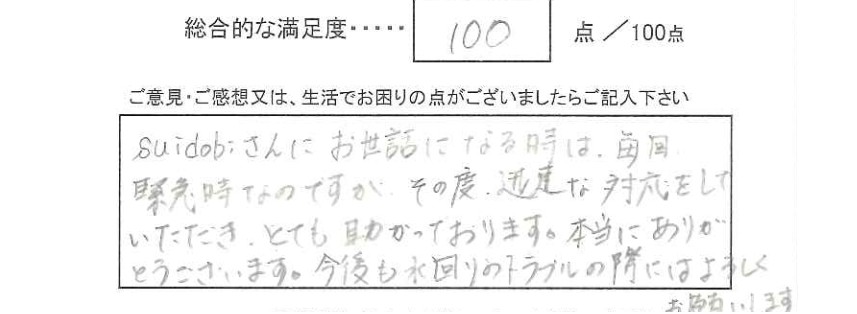 総合的な満足度・・・・・ 100 点 ／100点
ご意見・ご感想又は、生活でお困りの点がございましたらご記入下さい
suidobiさんにお世話になる時は、毎回
緊急時なのですが、その度、迅速な対応をして
いただき、とても助かっております。本当にありが
とうございます。今後も水回りのトラブルの際にはよろしく
お願いします